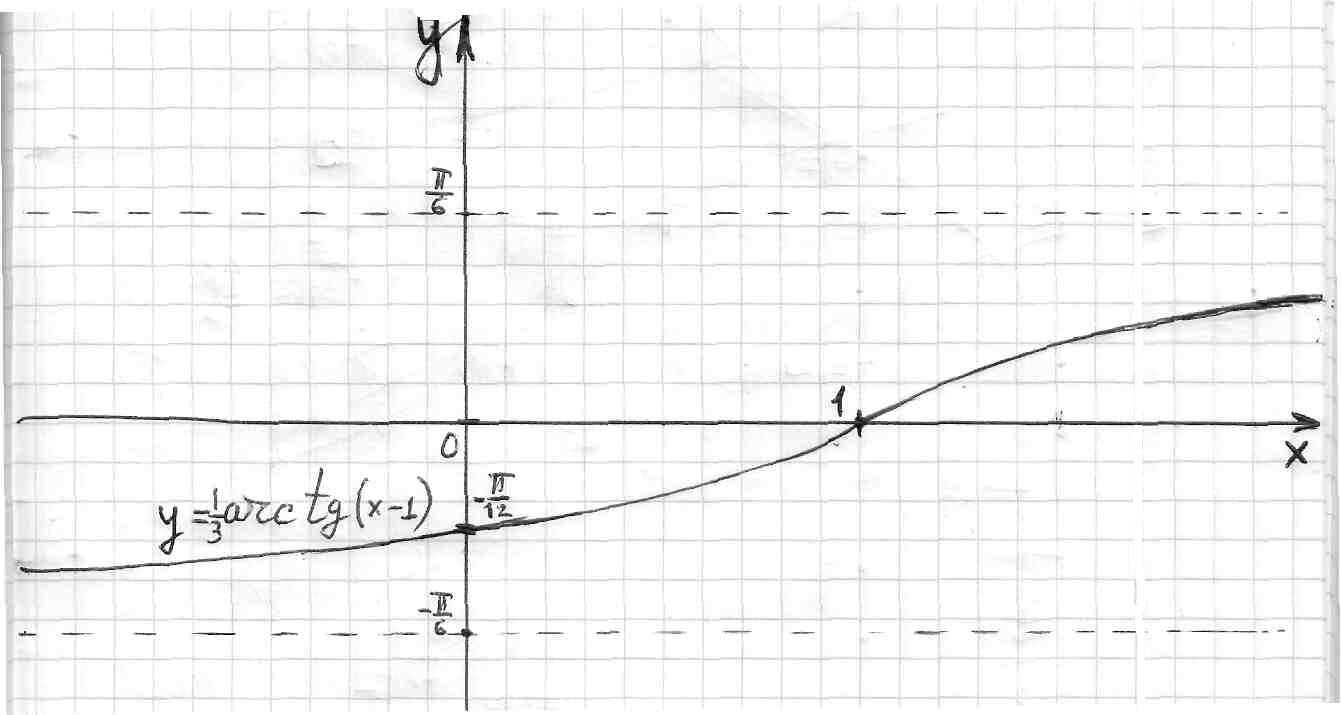 y
π/6
1
0
x
y=1/3 arc tg(x-1)
-π/12
-π/6